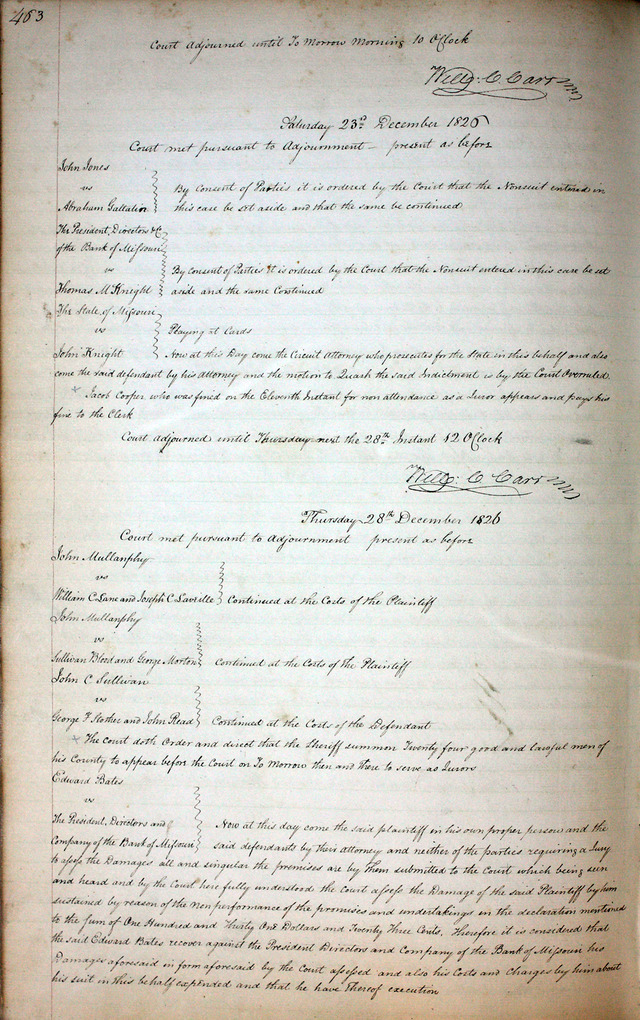 463
Court adjourned until To Morrow Morning 10 OClock
Willm: C Carr
Saturday 23rd December 1826
Court met pursuant to Adjournment – present as before
John Jones
vs
By Consent of Parties it is ordered by the Court that the Nonsuit entered in
Abraham Gallatin
this case be set aside and that the same be continued
The President, Directors &c
of the Bank of Missouri
vs
By Consent of Parties it is ordered by the Court that the Nonsuit entered in this case be set
Thomas McKnight
aside and the same Continued
The State of Missouri
vs
Playing at Cards
John Knight
Now at this Day come the Circuit Attorney who prosecutes for the State in this behalf and also
come the said defendant by his Attorney and the motion to Quash the said Indictment is by the Court Overruled
Jacob Cooper who was fined on the Eleventh Instant for non attendance as a Juror appears and pays his
fine to the Clerk
Court adjourned until Thursday next the 28th Instant 12 OClock
Willm: C Carr
Thursday 28th December 1826
Court met pursuant to Adjournment present as before
John Mullanphy
vs
William C Lane and Joseph C Laveille Continued at the Costs of the Plaintiff
John Mullanphy
vs
Sullivan Blood and George Morton Continued at the Costs of the Plaintiff
John C Sullivan
vs
George F Strother and John Read Continued at the Costs of the Defendant
The Court doth Order and direct that the Sheriff summon Twenty four good and lawful men of
his County to appear before the Court on To Morrow then and there to serve as Jurors
Edward Bates
vs
The President, Directors and Now at this day come the said plaintiff in his own proper person and the
Company of the Bank of Missouri said defendants by their Attorney and neither of the parties requiring a Jury
to assess the Damages all and singular the premises are by them submitted to the Court which being seen
and heard and by the Court here fully understood the Court assess the Damage of the said Plaintiff by him
sustained by reason of the Non performance of the promises and undertakings in the declaration mentioned
to the sum of One Hundred and Thirty One Dollars and Twenty Three Cents. Therefore it is considered that
the said Edward Bates recover against the President Directors and Company of the Bank of Missouri his
Damages aforesaid in form aforesaid by the Court assessed and also his Costs and Charges by him about
his suit in this behalf expended and that he have thereof execution